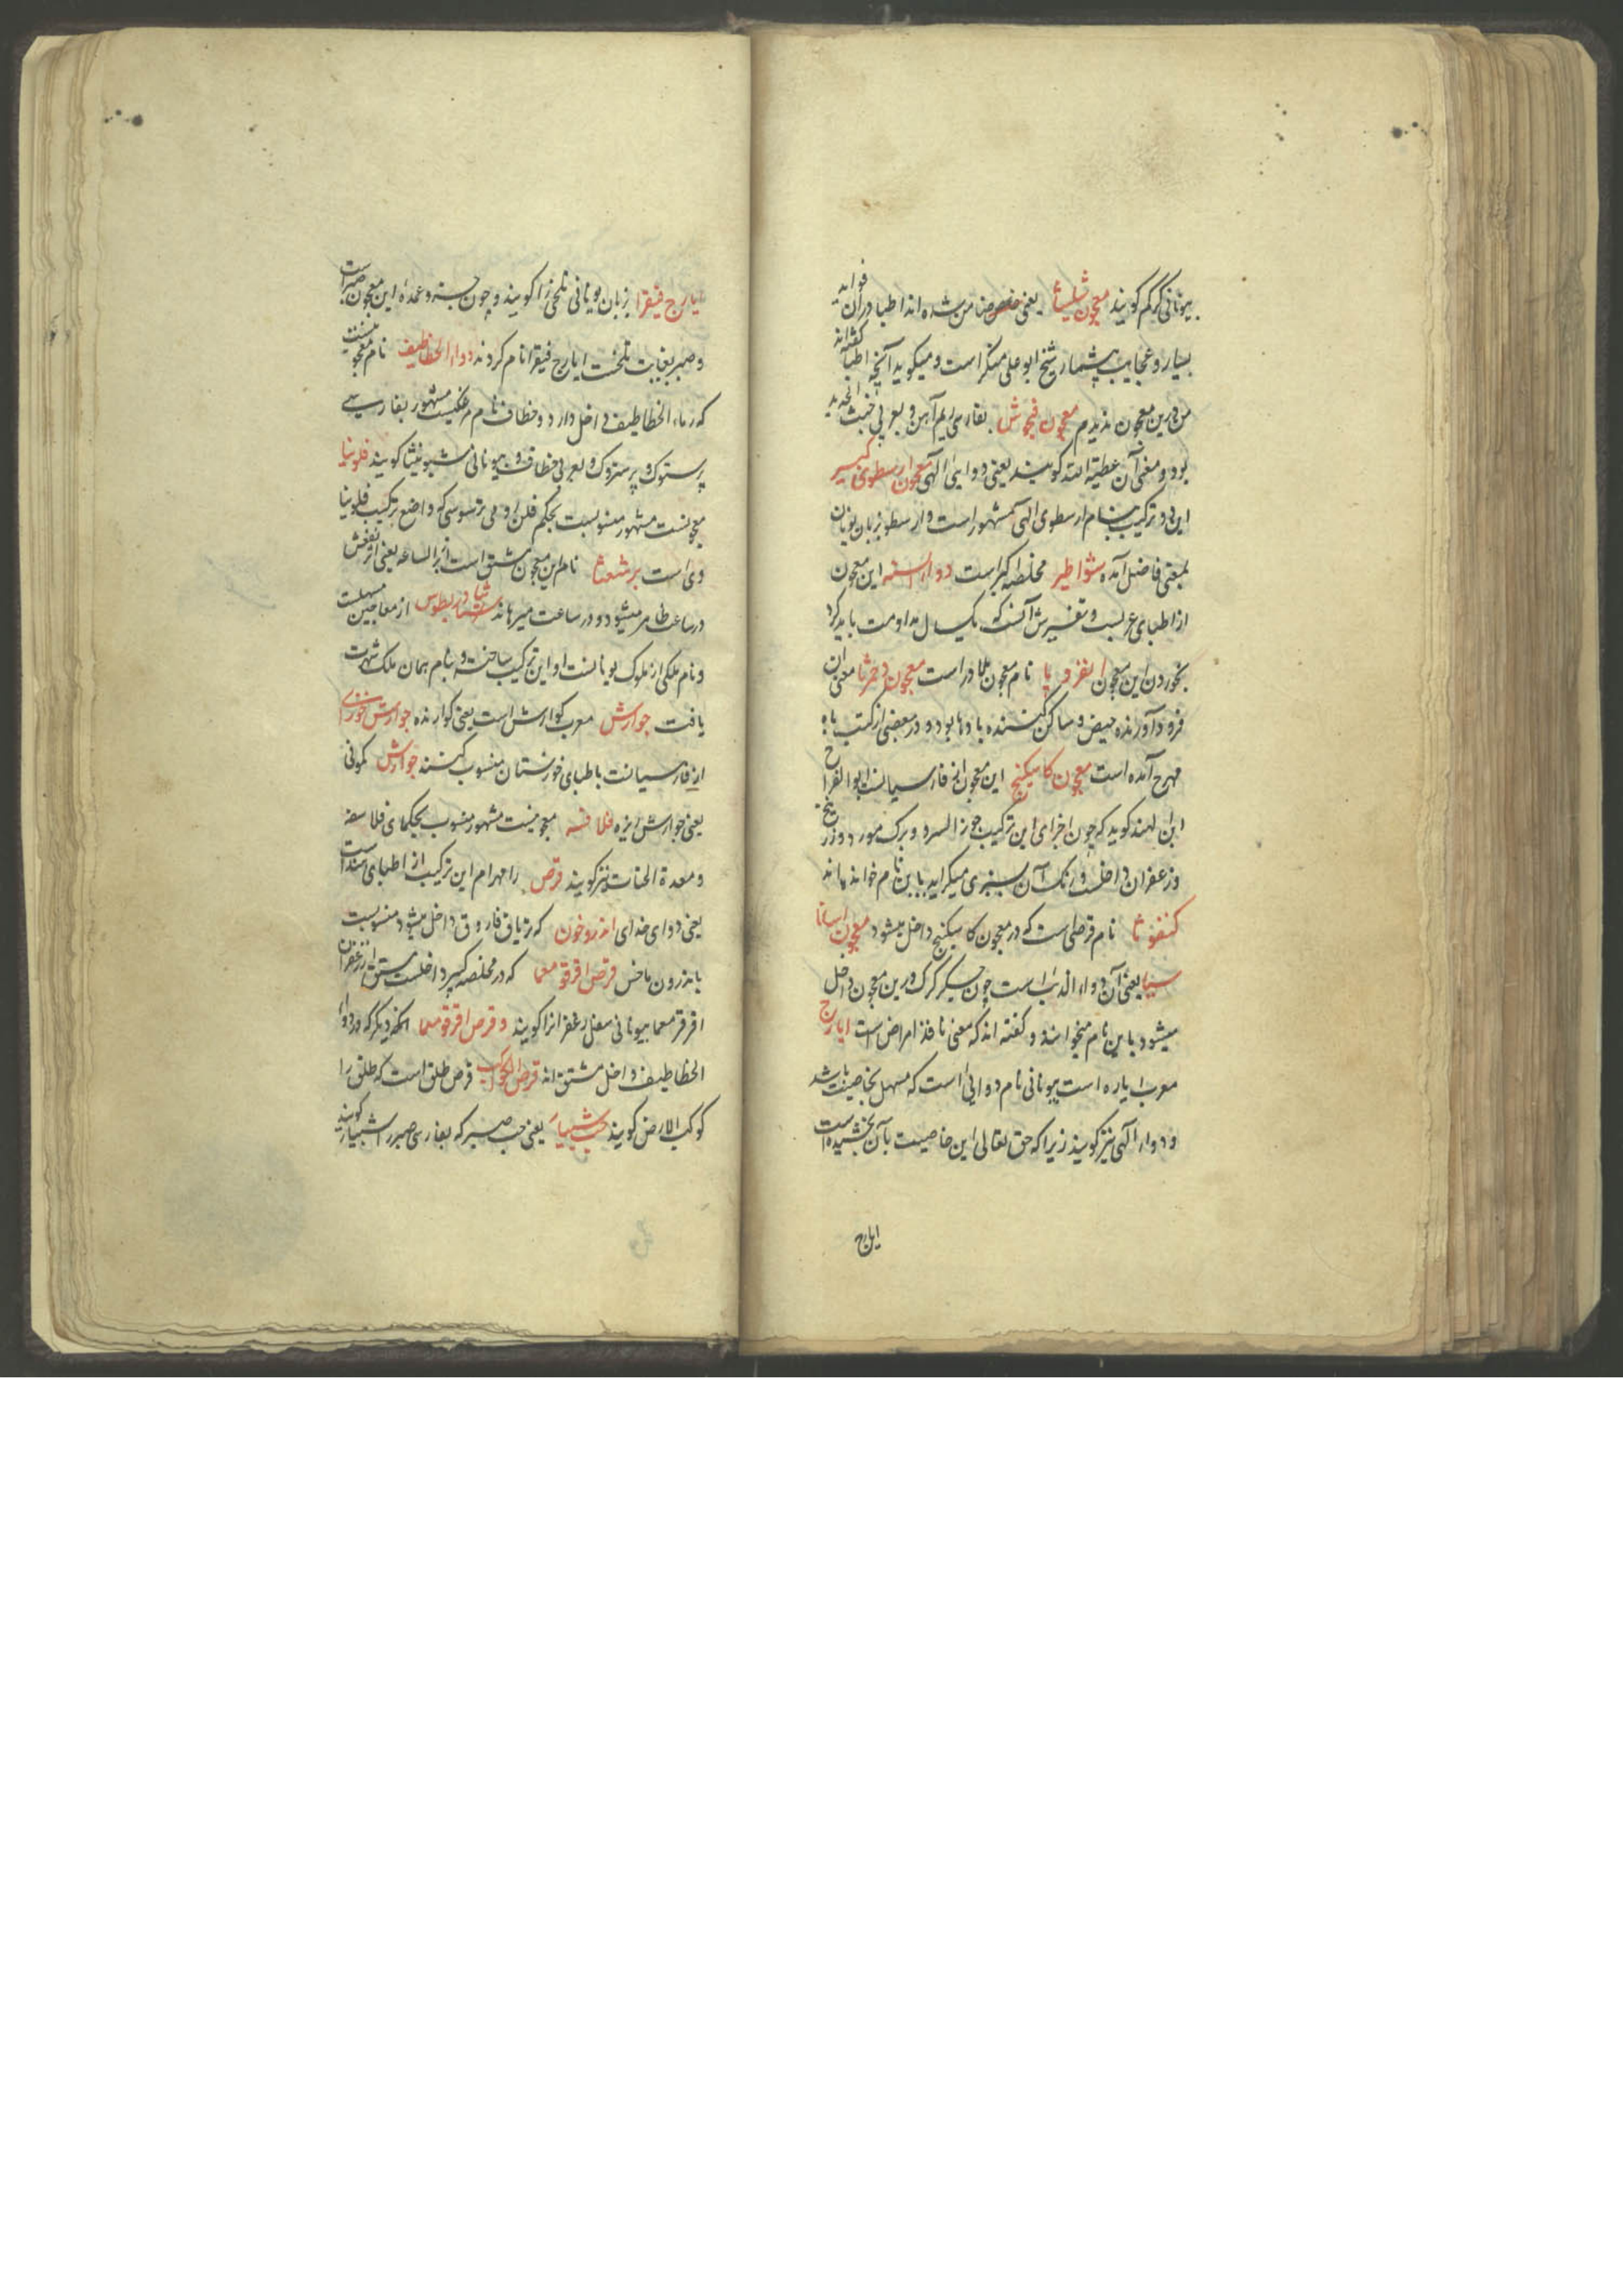 بیونانی کرکم کویند معجون شلیثا یعنی ضامن شده اند اطبا در ان فواید
بسیار و عجایب بیشمار شیخ ابو علی منکر است و میکوید آنچه اطبا کفته اند
من درین معجون ندیدم معجون فنجنوش بفارسی ریم آهن و بعربی خبث الحدید
بود و معنی آن عطیة الله کویند یعنی دوایی الهی معجون ارسطوی کبیر
این دو ترکیب بنام ارسطوی الهی مشهور است و ارسطو بزبان یونان
بمعنی فاضل آمده شواطیر مخلصه اکبر است دواء السنه این معجون
از اطبای عربست و تفسیرش آنست که یکسال مداومت باید کرد
بخوردن این معجون انقرویا نام معجون بلادر است معجون دحمرثا معنی ان
فرود آورنده حیض و ساکن کننده بادها بود و در بعضی از کتب باه
مهرج آمده است معجون کاسکبینج این معجون از فارسیانست ابو الفرج
ابن الهند کوید که چون اجزای این ترکیب جوز السرو و برک مورد و زرنیخ
و زعفران داخلست و رنک آن بسبزی میکراید باین نام خوانده اند
کنفوثا نام قرصی است که در معجون کاسکبینج داخل میشود معجون اسانا
سیا یعنی آن دواء الذیب است چون جکر کرک درین معجون داخل
میشود باین نام میخوانند و کفته اند که معنی نافذ امراض است ایارج
معرب ایاره است بیونانی نام دوایی است که مسهل بخاصیت باشد
و دواء الهی نیز کویند زیرا که حق تعالی این خاصیت بآن بخشیده است
ایارج
ایارج فیقرا بزبان یونانی تلخی را کویند و چون جزو عمده این معجون صبر است
و صبر بغایت تلخست ایارج فیقرا نام کردند دواء الخطاطیف نام معجونیست
که رماد الخطاطیف داخل دارد و خطاف نام مرغیست مشهور بفارسی
پرستوک و پرستروک و بعربی خطاف و بیونانی کویند فلونیا
معجونیست مشهور منسوبست بحکیم فلن رومی ترسوسی که واضع ترکیب فلونیا
وی است برشعثا نام این معجون مشتق است از برء الساعه یعنی اثر نفعش
در ساعت ظاهر میشود و در ساعت میرهاند ثیادریطوس از معاجین مسهلست
و نام ملکی از ملوک یونانست او این ترکیب ساخته و بنام همان ملک شهرت
یافت جوارش معرب کوارش است یعنی کوارنده جوارش خوزی
از فارسیانست باطبای خوزستان منسوب کنند جوارش کمونی
یعنی جوارش زیره فلاسفه معجونیست مشهور منسوب بحکمای فلاسفه
و معدة الحیات نیز کویند قرص رامهرام این ترکیب از اطبای هنداست
یعنی دوای خدای اندروخون که در تریاق فاروق داخل میشود منسوبست
باندرون ماخس قرص اقرقومعما که در مخلصه کبیر داخلست مشتق از زعفران
اقرقومعما بیونانی مغل زعفرانرا کویند و قرص اقرقومعما نسخه دیکر که در دواء
الخطاطیف داخل مشتق اند قرص الکوکب قرص طلق است که طلق را
کوکب الارض کویند حب شبیار یعنی حب صبر که بفارسی صبر را شبیار کویند